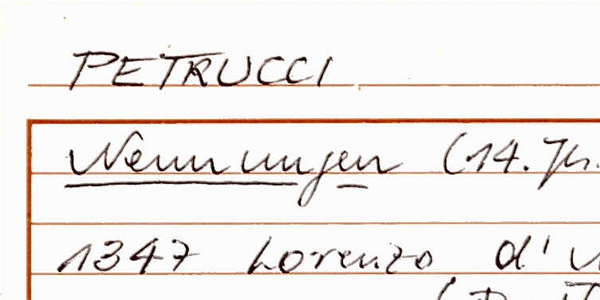 PETRUCCI
Nennungen (14. Jh.
1347 Lorenzo d'